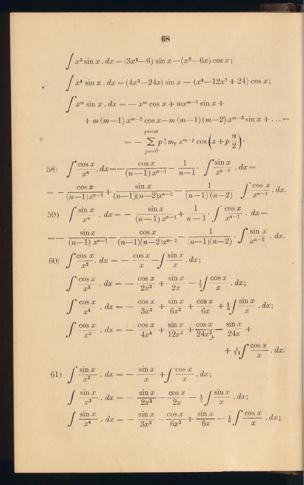 68
∫ x³ sin x . dx = (3x²−6) sin x − (x³−6x) cos x;
∫ x⁴ sin x . dx = (4x³−24x) sin x − (x⁴−12x²+24) cos x;
∫ xᵐ sin x . dx = − xᵐ cos x + mxᵐ⁻¹ sin x +
+ m (m−1) xᵐ⁻² cos x − m (m−1) (m−2) xᵐ⁻³ sin x + ... =
= − Σ p! mₚ xᵐ⁻ᵖ cos(x + p π/2).
58) ∫ cos x / xⁿ . dx = − cos x / (n−1) xⁿ⁻¹ − 1/(n−1) . ∫ sin x / xⁿ⁻¹ . dx =
= − cos x / (n−1) xⁿ⁻¹ + sin x / (n−1)(n−2)xⁿ⁻² − 1 / (n−1) (n−2) . ∫ cos x / xⁿ⁻² . dx.
59) ∫ sin x / xⁿ . dx = − sin x / (n−1) xⁿ⁻¹ + 1/(n−1) . ∫ cos x / xⁿ⁻¹ . dx =
= − sin x / (n−1) xⁿ⁻¹ − cos x / (n−1)(n−2)xⁿ⁻² − 1 / (n−1)(n−2) . ∫ sin x / xⁿ⁻² . dx.
60) ∫ cos x / x² . dx = − cos x / x − ∫ sin x / x . dx;
∫ cos x / x³ . dx = − cos x / 2x² + sin x / 2x − ½ ∫ cos x / x . dx;
∫ cos x / x⁴ . dx = − cos x / 3x³ + sin x / 6x² + cos x / 6x + ⅙ ∫ sin x / x . dx;
∫ cos x / x⁵ . dx = − cos x / 4x⁴ + sin x / 12x³ + cos x / 24x² − sin x / 24x +
+ 1/24 ∫ cos x / x . dx.
61) ∫ sin x / x² . dx = − sin x / x + ∫ cos x / x . dx;
∫ sin x / x³ . dx = − sin x / 2x² − cos x / 2x − ½ ∫ sin x / x . dx;
∫ sin x / x⁴ . dx = − sin x / 3x³ − cos x / 6x² + sin x / 6x − ⅙ ∫ cos x / x . dx;